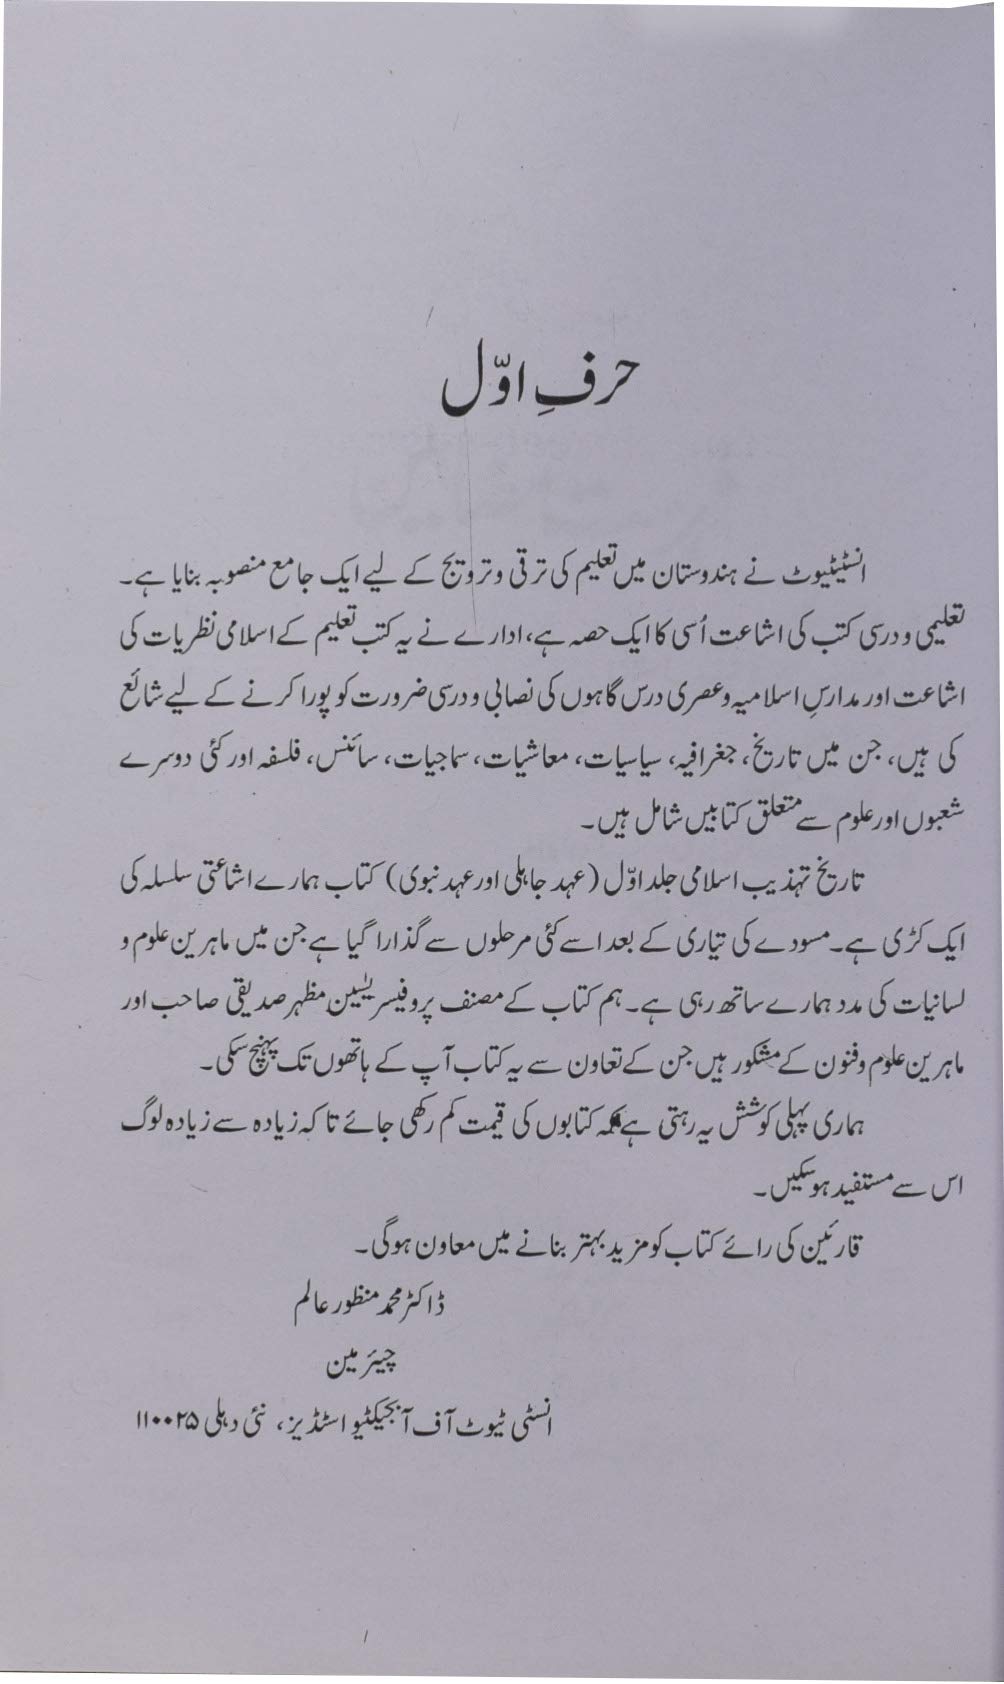 حرفِ اوّل
انسٹیٹیوٹ نے ہندوستان میں تعلیم کی ترقی و ترویج کے لیے ایک جامع منصوبہ بنایا ہے۔
تعلیمی و درسی کتب کی اشاعت اُسی کا ایک حصہ ہے، ادارے نے یہ کتب تعلیم کے اسلامی نظریات کی
اشاعت اور مدارسِ اسلامیہ و عصری درس گاہوں کی نصابی و درسی ضرورت کو پورا کرنے کے لیے شائع
کی ہیں، جن میں تاریخ، جغرافیہ، سیاسیات، معاشیات، سماجیات، سائنس، فلسفہ اور کئی دوسرے
شعبوں اور علوم سے متعلق کتابیں شامل ہیں۔
تاریخ تہذیب اسلامی جلد اوّل (عہد جاہلی اور عہد نبوی) کتاب ہمارے اشاعتی سلسلہ کی
ایک کڑی ہے۔ مسودے کی تیاری کے بعد اسے کئی مرحلوں سے گذارا گیا ہے جن میں ماہرین علوم و
لسانیات کی مدد ہمارے ساتھ رہی ہے۔ ہم کتاب کے مصنف پروفیسر یٰسین مظہر صدیقی صاحب اور
ماہرین علوم و فنون کے مشکور ہیں جن کے تعاون سے یہ کتاب آپ کے ہاتھوں تک پہنچ سکی۔
ہماری پہلی کوشش یہ رہتی ہے کہ کتابوں کی قیمت کم رکھی جائے تاکہ زیادہ سے زیادہ لوگ
اس سے مستفید ہوسکیں۔
قارئین کی رائے کتاب کو مزید بہتر بنانے میں معاون ہوگی۔
ڈاکٹر محمد منظور عالم
چیئرمین
انسٹی ٹیوٹ آف آبجیکٹیو اسٹڈیز، نئی دہلی ۱۱۰۰۲۵